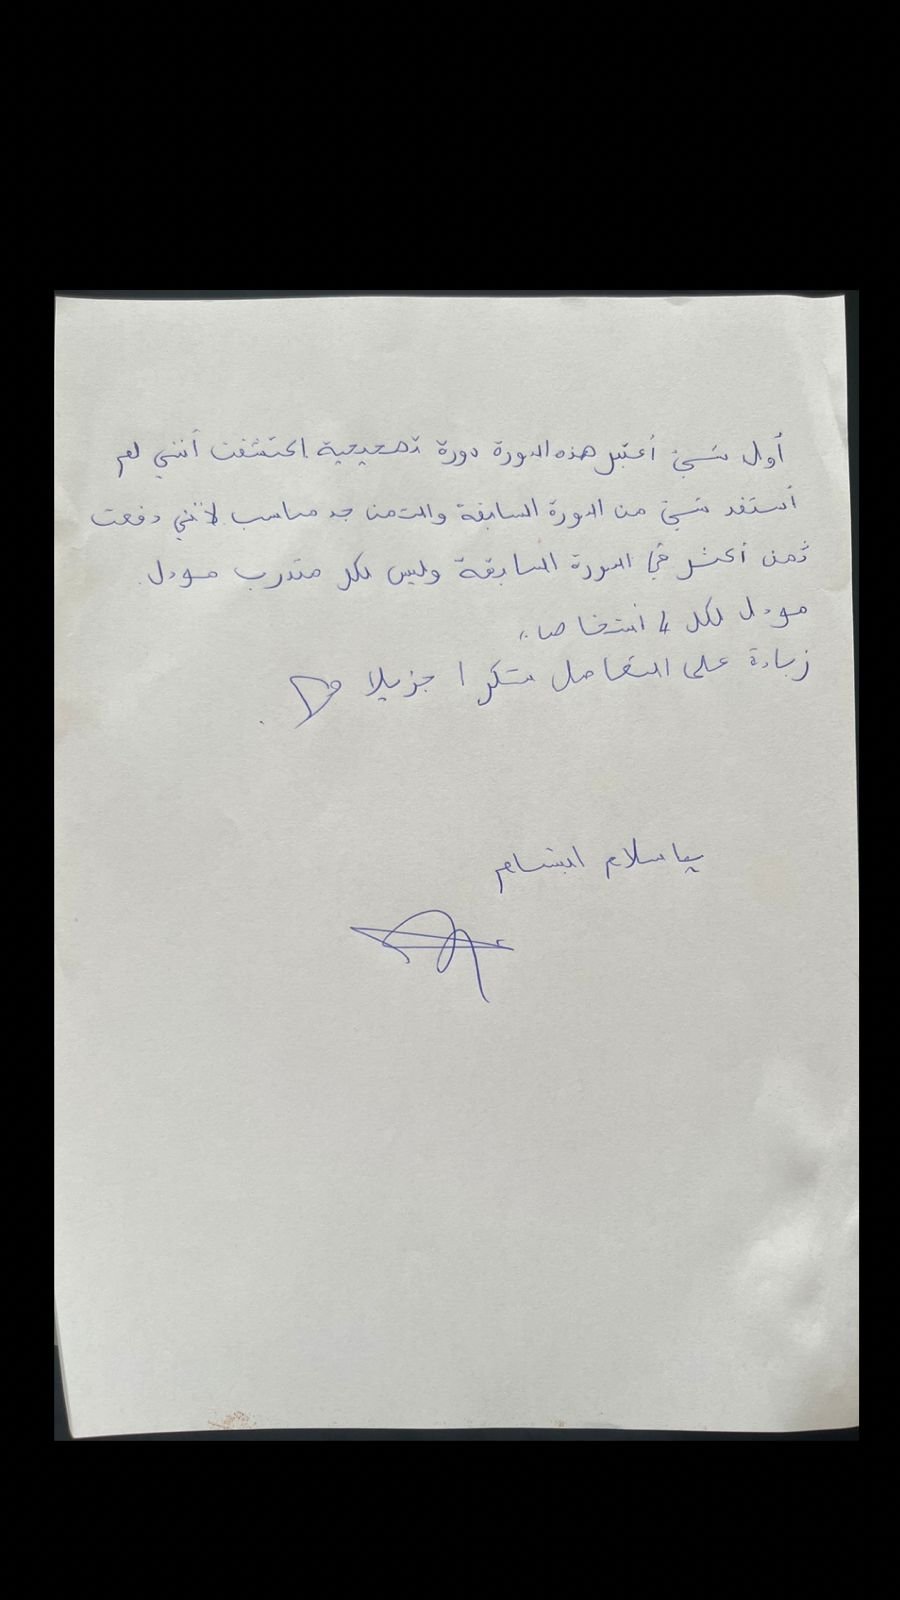 أول شيئ أعتبر هذه الدورة دورة تصحيحية اكتشفت أنني لم
أستفد شيئ من الدورة السابقة والثمن جد مناسب لأنني دفعت
ثمن أكثر في الدورة السابقة وليس لكل متدرب موديل
موديل لكل 4 أشخاص،،
زيادة على التفاصيل شكرا جزيلا
ياسلام ابتسام